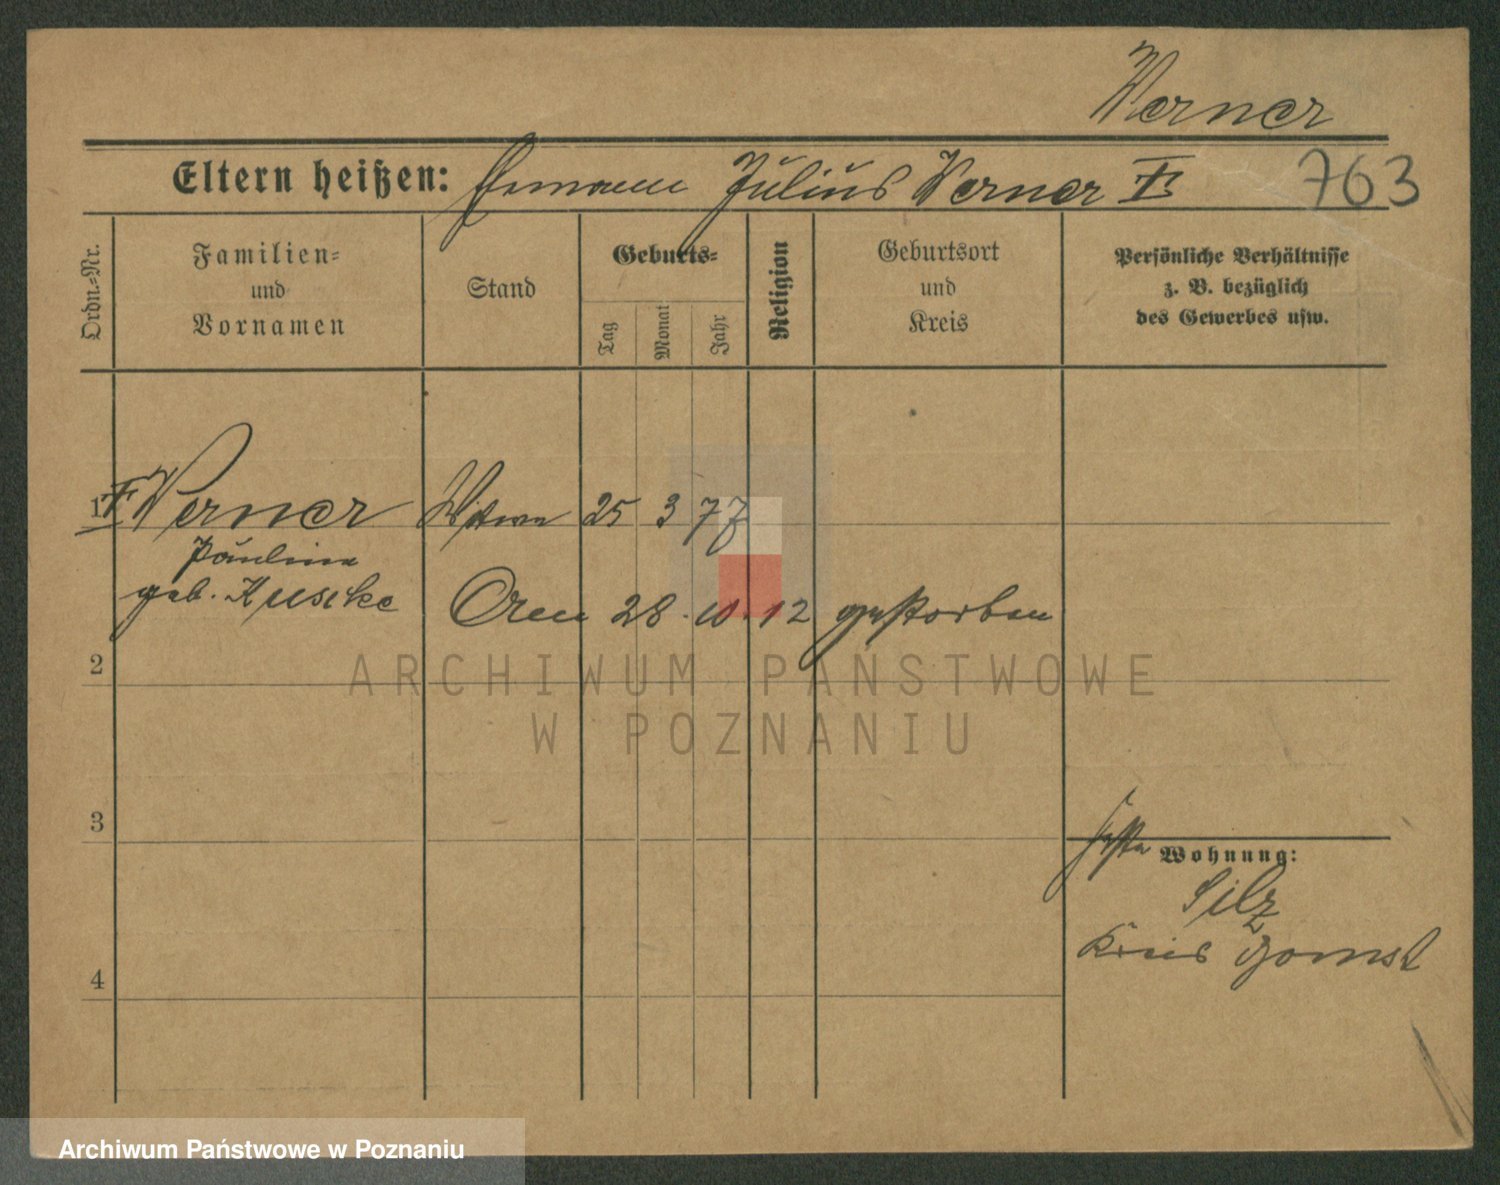 Werner
Eltern heißen: Hermann Julius Werner
763
Ordn.-Nr.
Familien-
und
Vornamen
Stand
Geburts-
Tag
Monat
Jahr
Religion
Geburtsort
und
Kreis
Persönliche Verhältnisse
z. B. bezüglich
des Gewerbes usw.
1 Werner Witwe 25 3 77
Pauline
geb. Kuschke
28. 10. 12 gestorben
2
ARCHIWUM PAŃSTWOWE
W POZNANIU
3
Wohnung:
Silz
Kreis Bomst
4
Archiwum Państwowe w Poznaniu